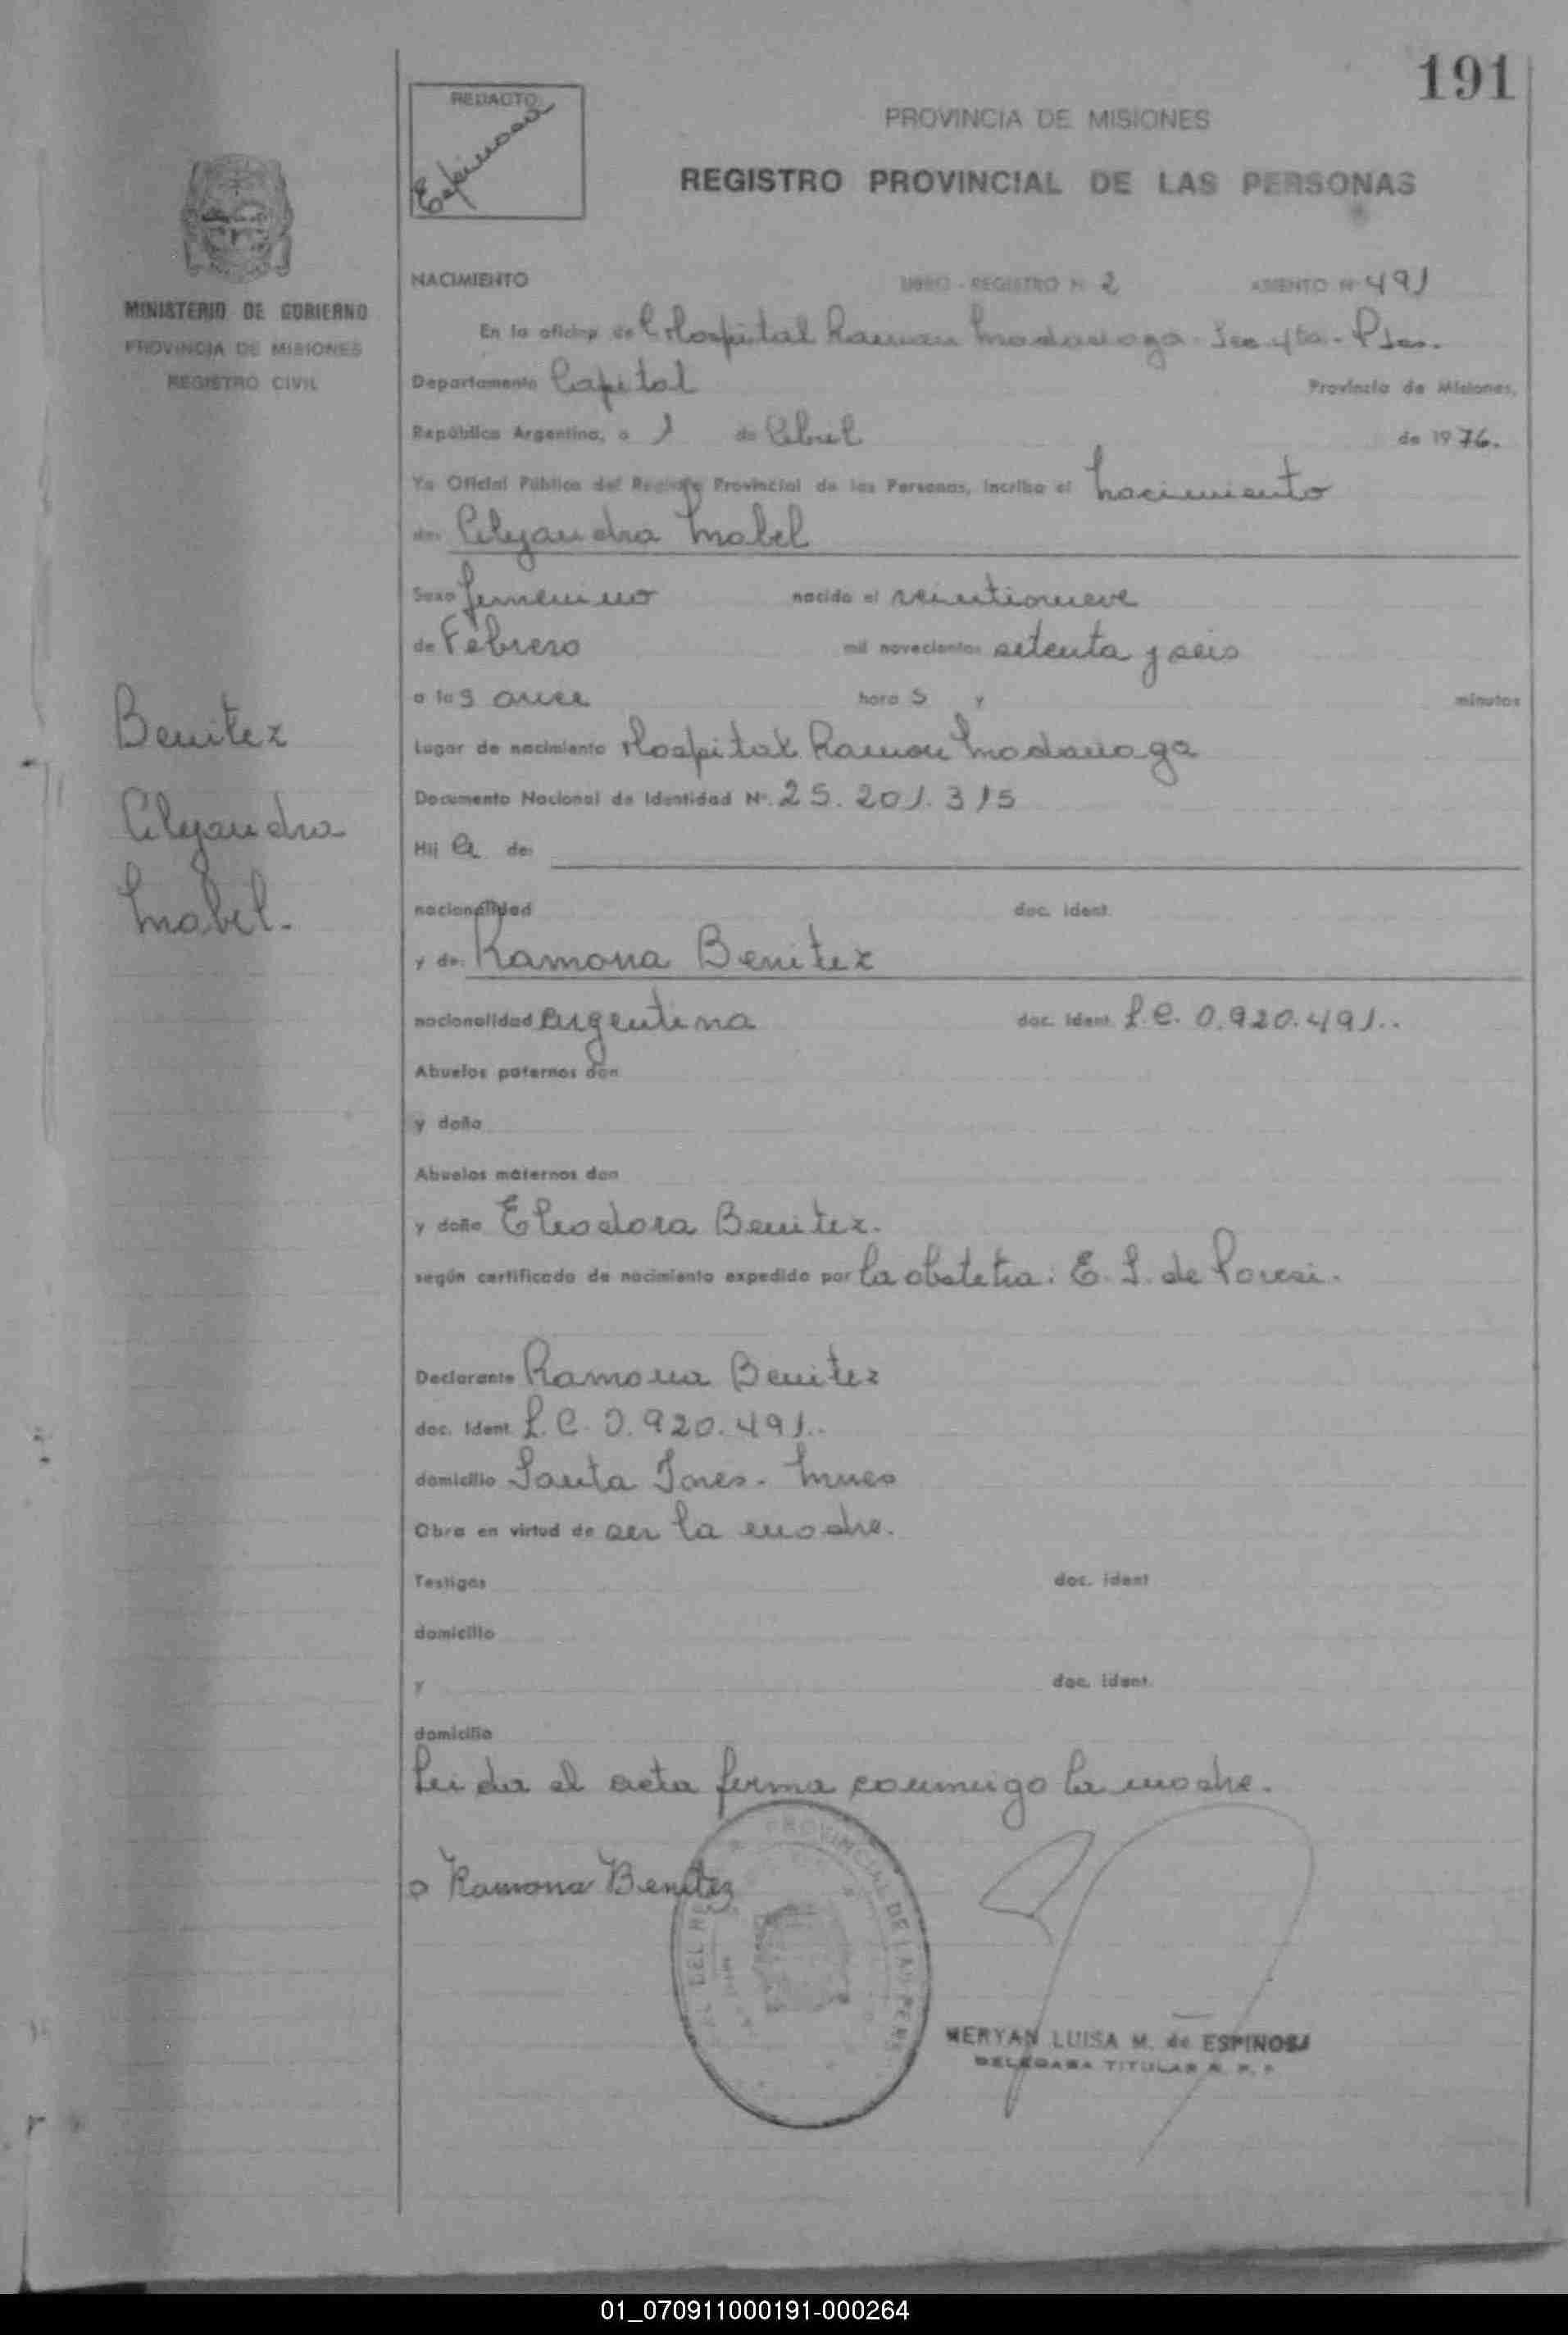 191
REDACTO:
Espinosa
PROVINCIA DE MISIONES
REGISTRO PROVINCIAL DE LAS PERSONAS
MINISTERIO DE GOBIERNO
PROVINCIA DE MISIONES
REGISTRO CIVIL
NACIMIENTO LIBRO - REGISTRO Nº 2 ASIENTO Nº 491
En la oficina del Hospital Ramon Madariaga - Sec 4ta - Pdas.
Departamento Capital Provincia de Misiones,
República Argentina, a 1 de Abril de 1976.
Yo Oficial Público del Registro Provincial de las Personas, incribo el Nacimiento
de: Alejandra Mabel
Sexo femenino nacido el veintinueve
de Febrero mil novecientos setenta y seis
a las once horas y minutos
Lugar de nacimiento Hospital Ramon Madariaga
Documento Nacional de Identidad Nº. 25.201.315
Hija de:
nacionalidad doc. ident.
y de: Ramona Benitez
nacionalidad Argentina doc. ident. L.C. 0.920.491..
Abuelos paternos don
y doña
Abuelos maternos don
y doña Eleodora Benitez.
según certificado de nacimiento expedido por la obstetra: E. S. de
Declarante Ramona Benitez
doc. ident. L.C. 0.920.491..
domicilio Santa Ines - Mnes
Obra en virtud de ser la madre.
Testigos doc. ident
domicilio
y doc. ident.
domicilio
Leida el acta firma conmigo la madre.
Ramona Benitez
Benitez
Alejandra
Mabel.
PROVINCIAL DE LAS PERS
MERYAN LUISA M. de ESPINOSA
DELEGADA TITULAR R. P. P.
01_070911000191-000264